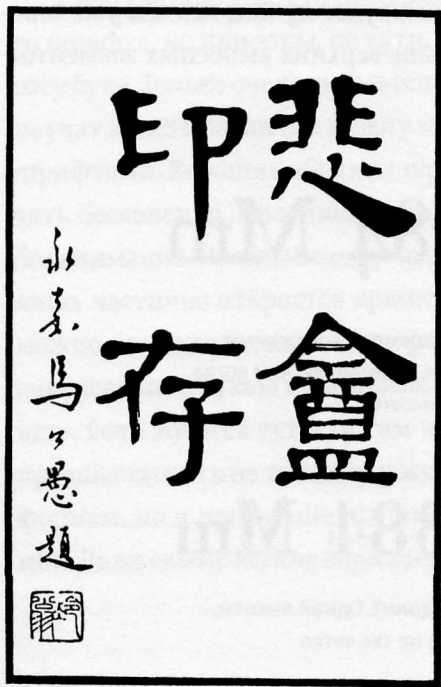 斐盦
印存
永嘉馬公愚題